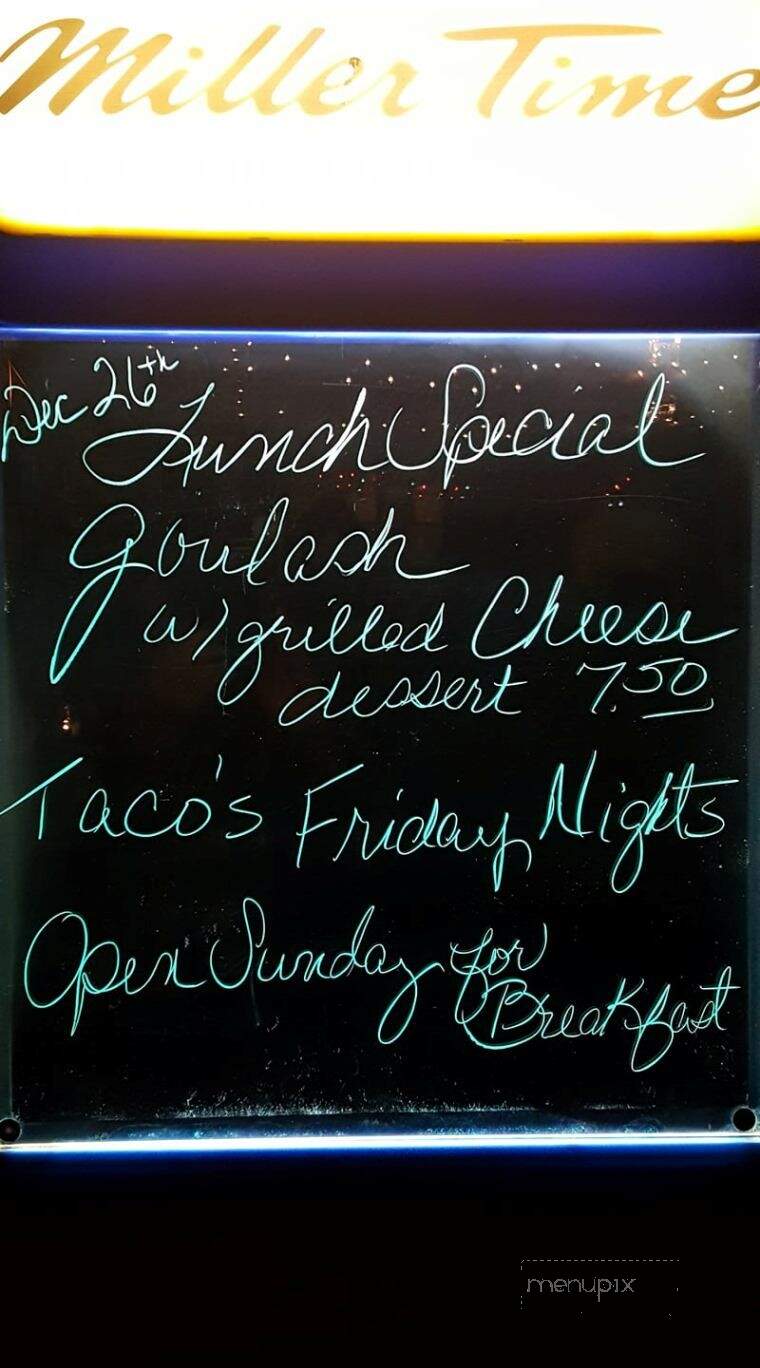 Miller Time
Dec 26th
Lunch Special
Goulash
w/grilled Cheese
dessert 7.50
Taco's Friday Nights
Open Sunday for
Breakfast
menupix